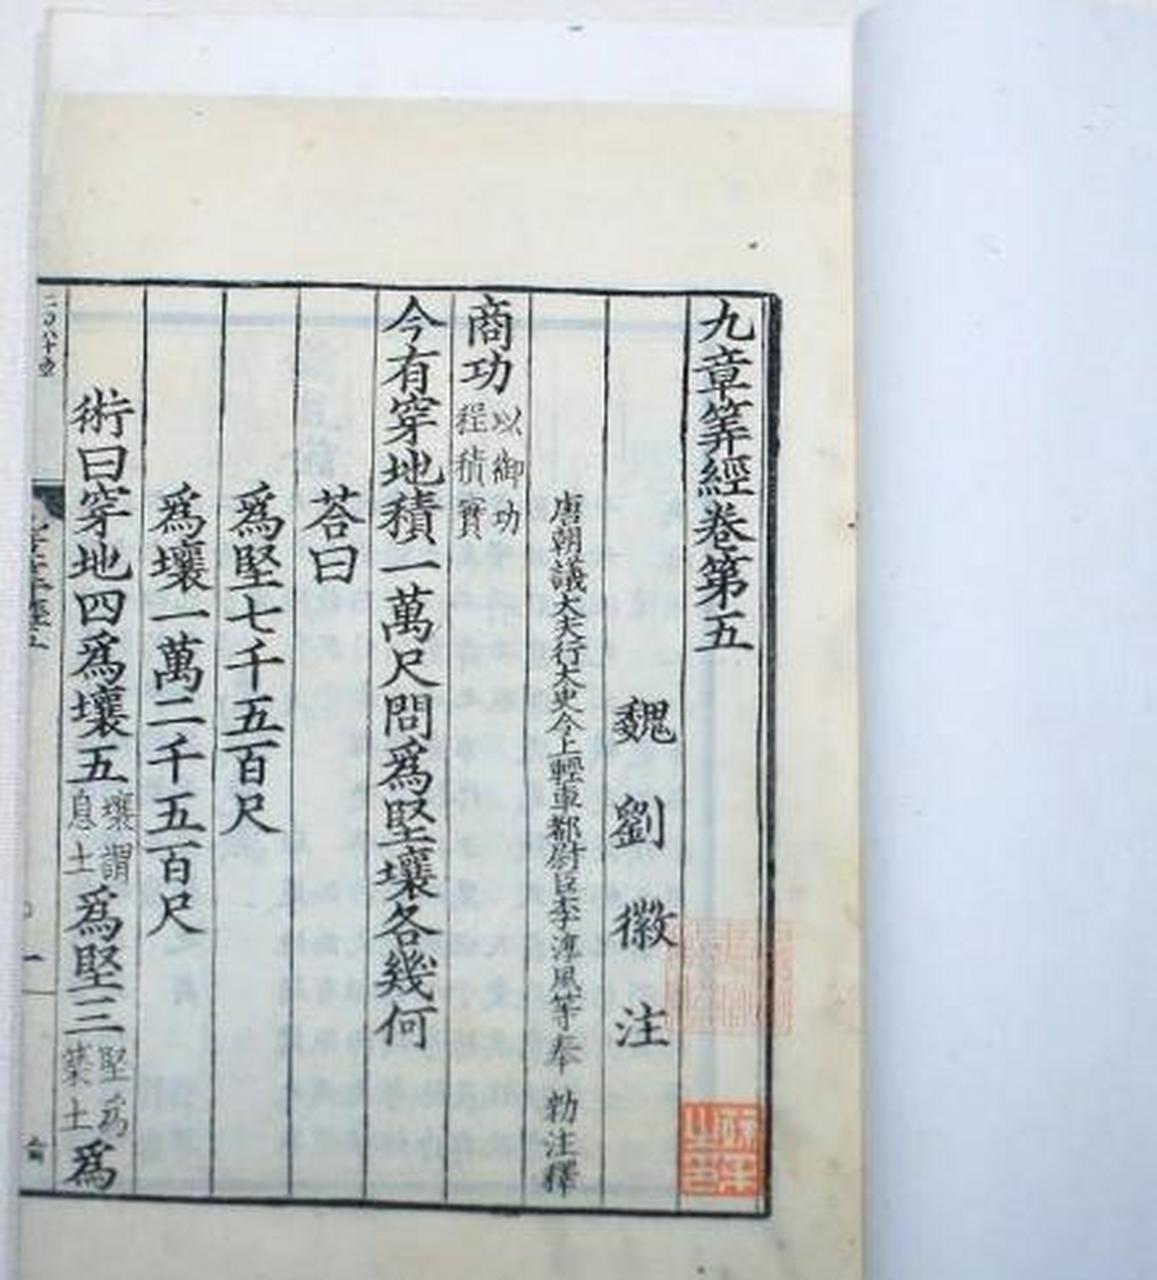 九章筭經卷第五
魏劉徽注
唐朝議大夫行太史令上輕車都尉臣李淳風等奉勑注釋
商功以御功程積實
今有穿地積一萬尺問爲堅壤各幾何
荅曰
爲堅七千五百尺
爲壤一萬二千五百尺
術曰穿地四爲壤五壤謂息土爲堅三堅爲築土爲